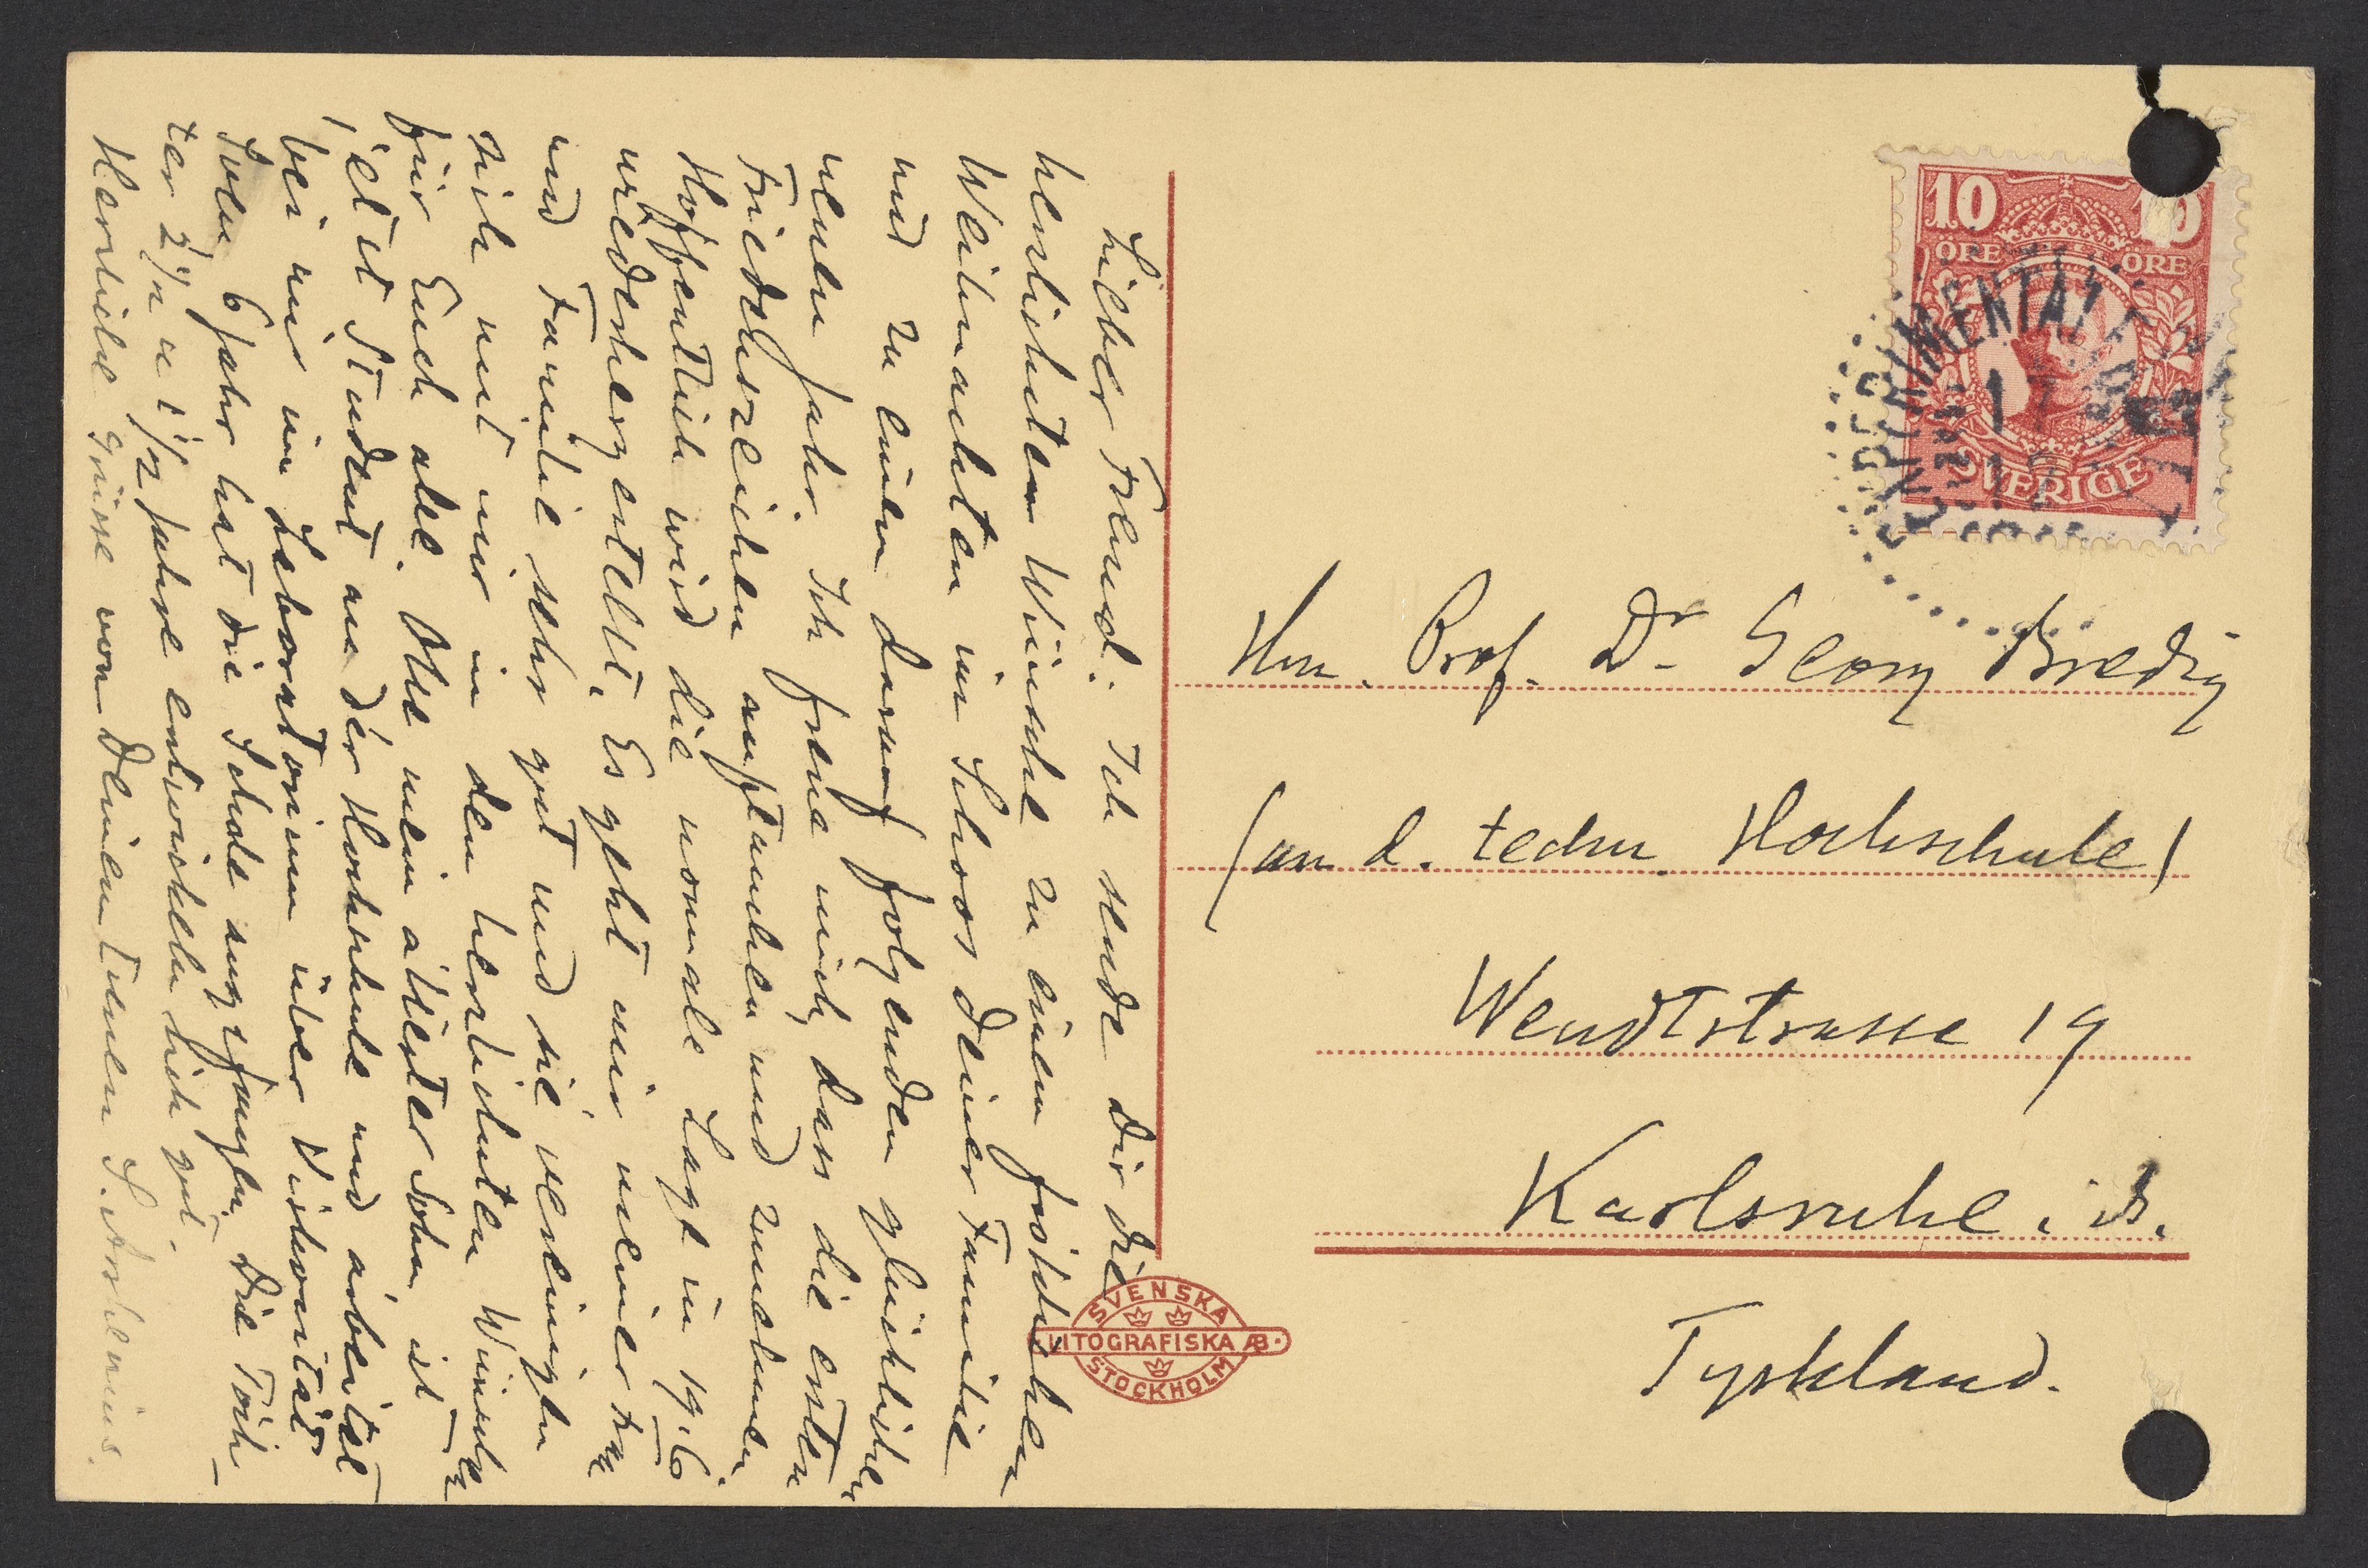 Lieber Freund. Ich sende Dir die
herzlichsten Wünsche zu einem fröhlichen
Weihnachten im Schoos Deiner Familie
und zu einem darauf folgenden glücklichen
neuen Jahr. Ich freue mich, dass die ersten
Friedenszeichen auftauchen und zunehmen.
Hoffentlich wird die normale Lage in 1916
wiederhergestellt. Es geht mir meiner Frau
und Familie sehr gut und sie vereinigen
sich mit mir in den herzlichsten Wünschen
für Euch alle. Olle mein ältester Sohn, ist
jetzt Student an der Hochschule und arbeitet
bei mir im Laboratorium über Viskosität
Sven 6 Jahr hat die Schule angefangen. Die Töch-
ter 2 1/2 u 1 1/2 Jahre entwickeln sich gut.
Herzliche Grüsse von Deinem treuen S. Arrhenius.
10 10
ÖRE ÖRE
SVERIGE
EXPERIMENTALFÄLTET
Hrn. Prof. Dr Georg Bredig
(an d. techn. Hochschule)
Wendtstrasse 19
Karlsruhe i. B.
Tyskland.
SVENSKA
LITOGRAFISKA AB.
STOCKHOLM